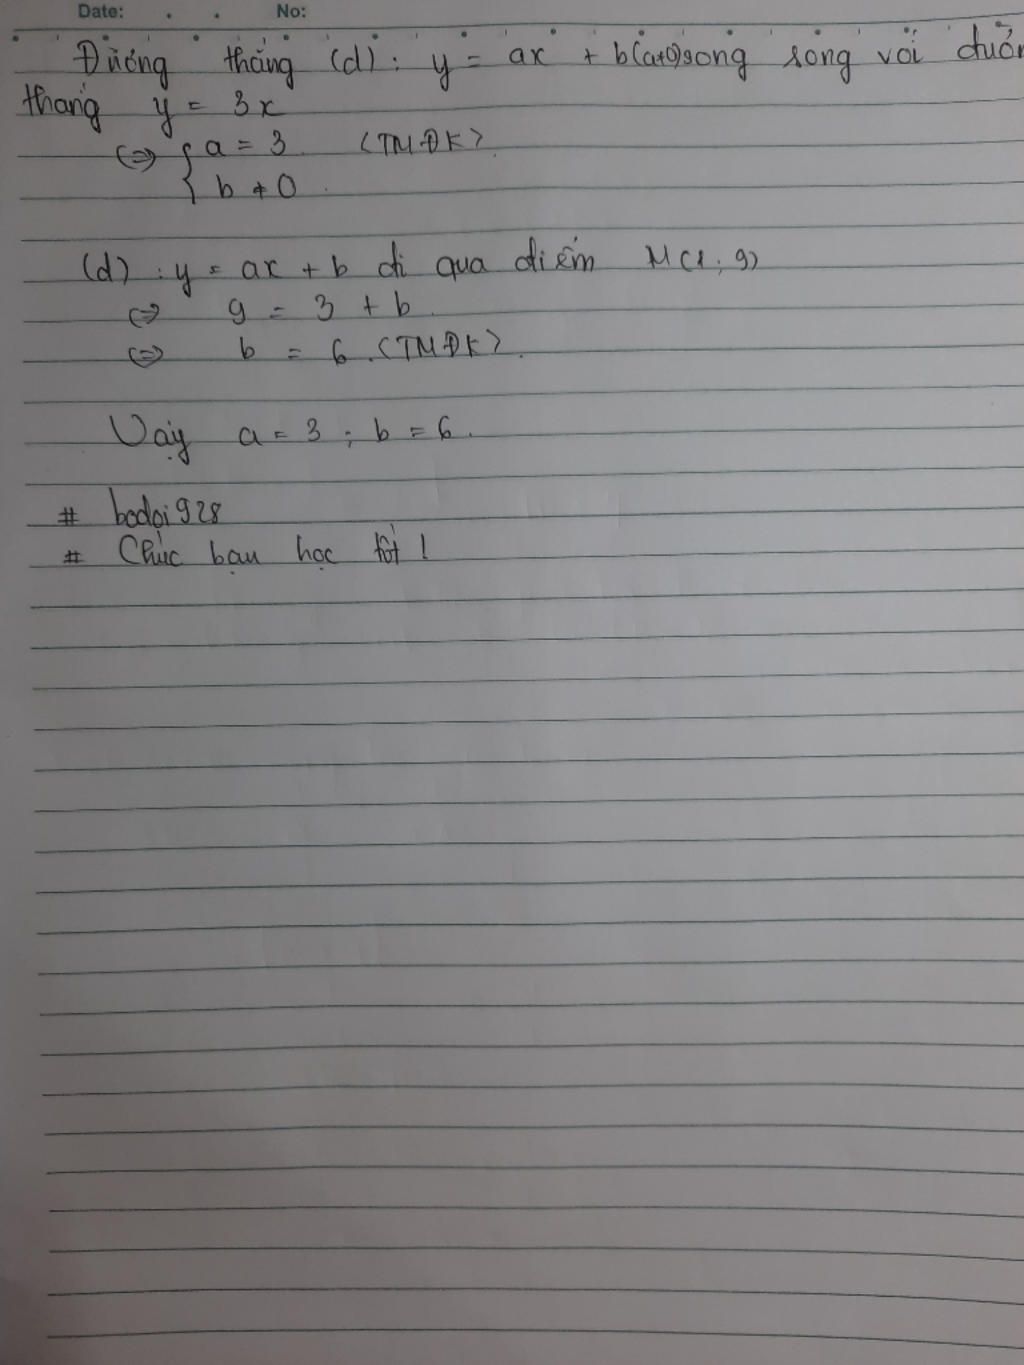 Date: . . No:
Đường thẳng (d): y = ax + b(a≠0)song song với đườn
thẳng y = 3x
⇔ { a = 3 (TMĐK)
b ≠ 0
(d): y = ax + b đi qua điểm M(1; 9)
⇔ 9 = 3 + b
⇔ b = 6 (TMĐK).
Vậy a = 3 ; b = 6.
# bodoi928
# Chúc bạn học tốt !